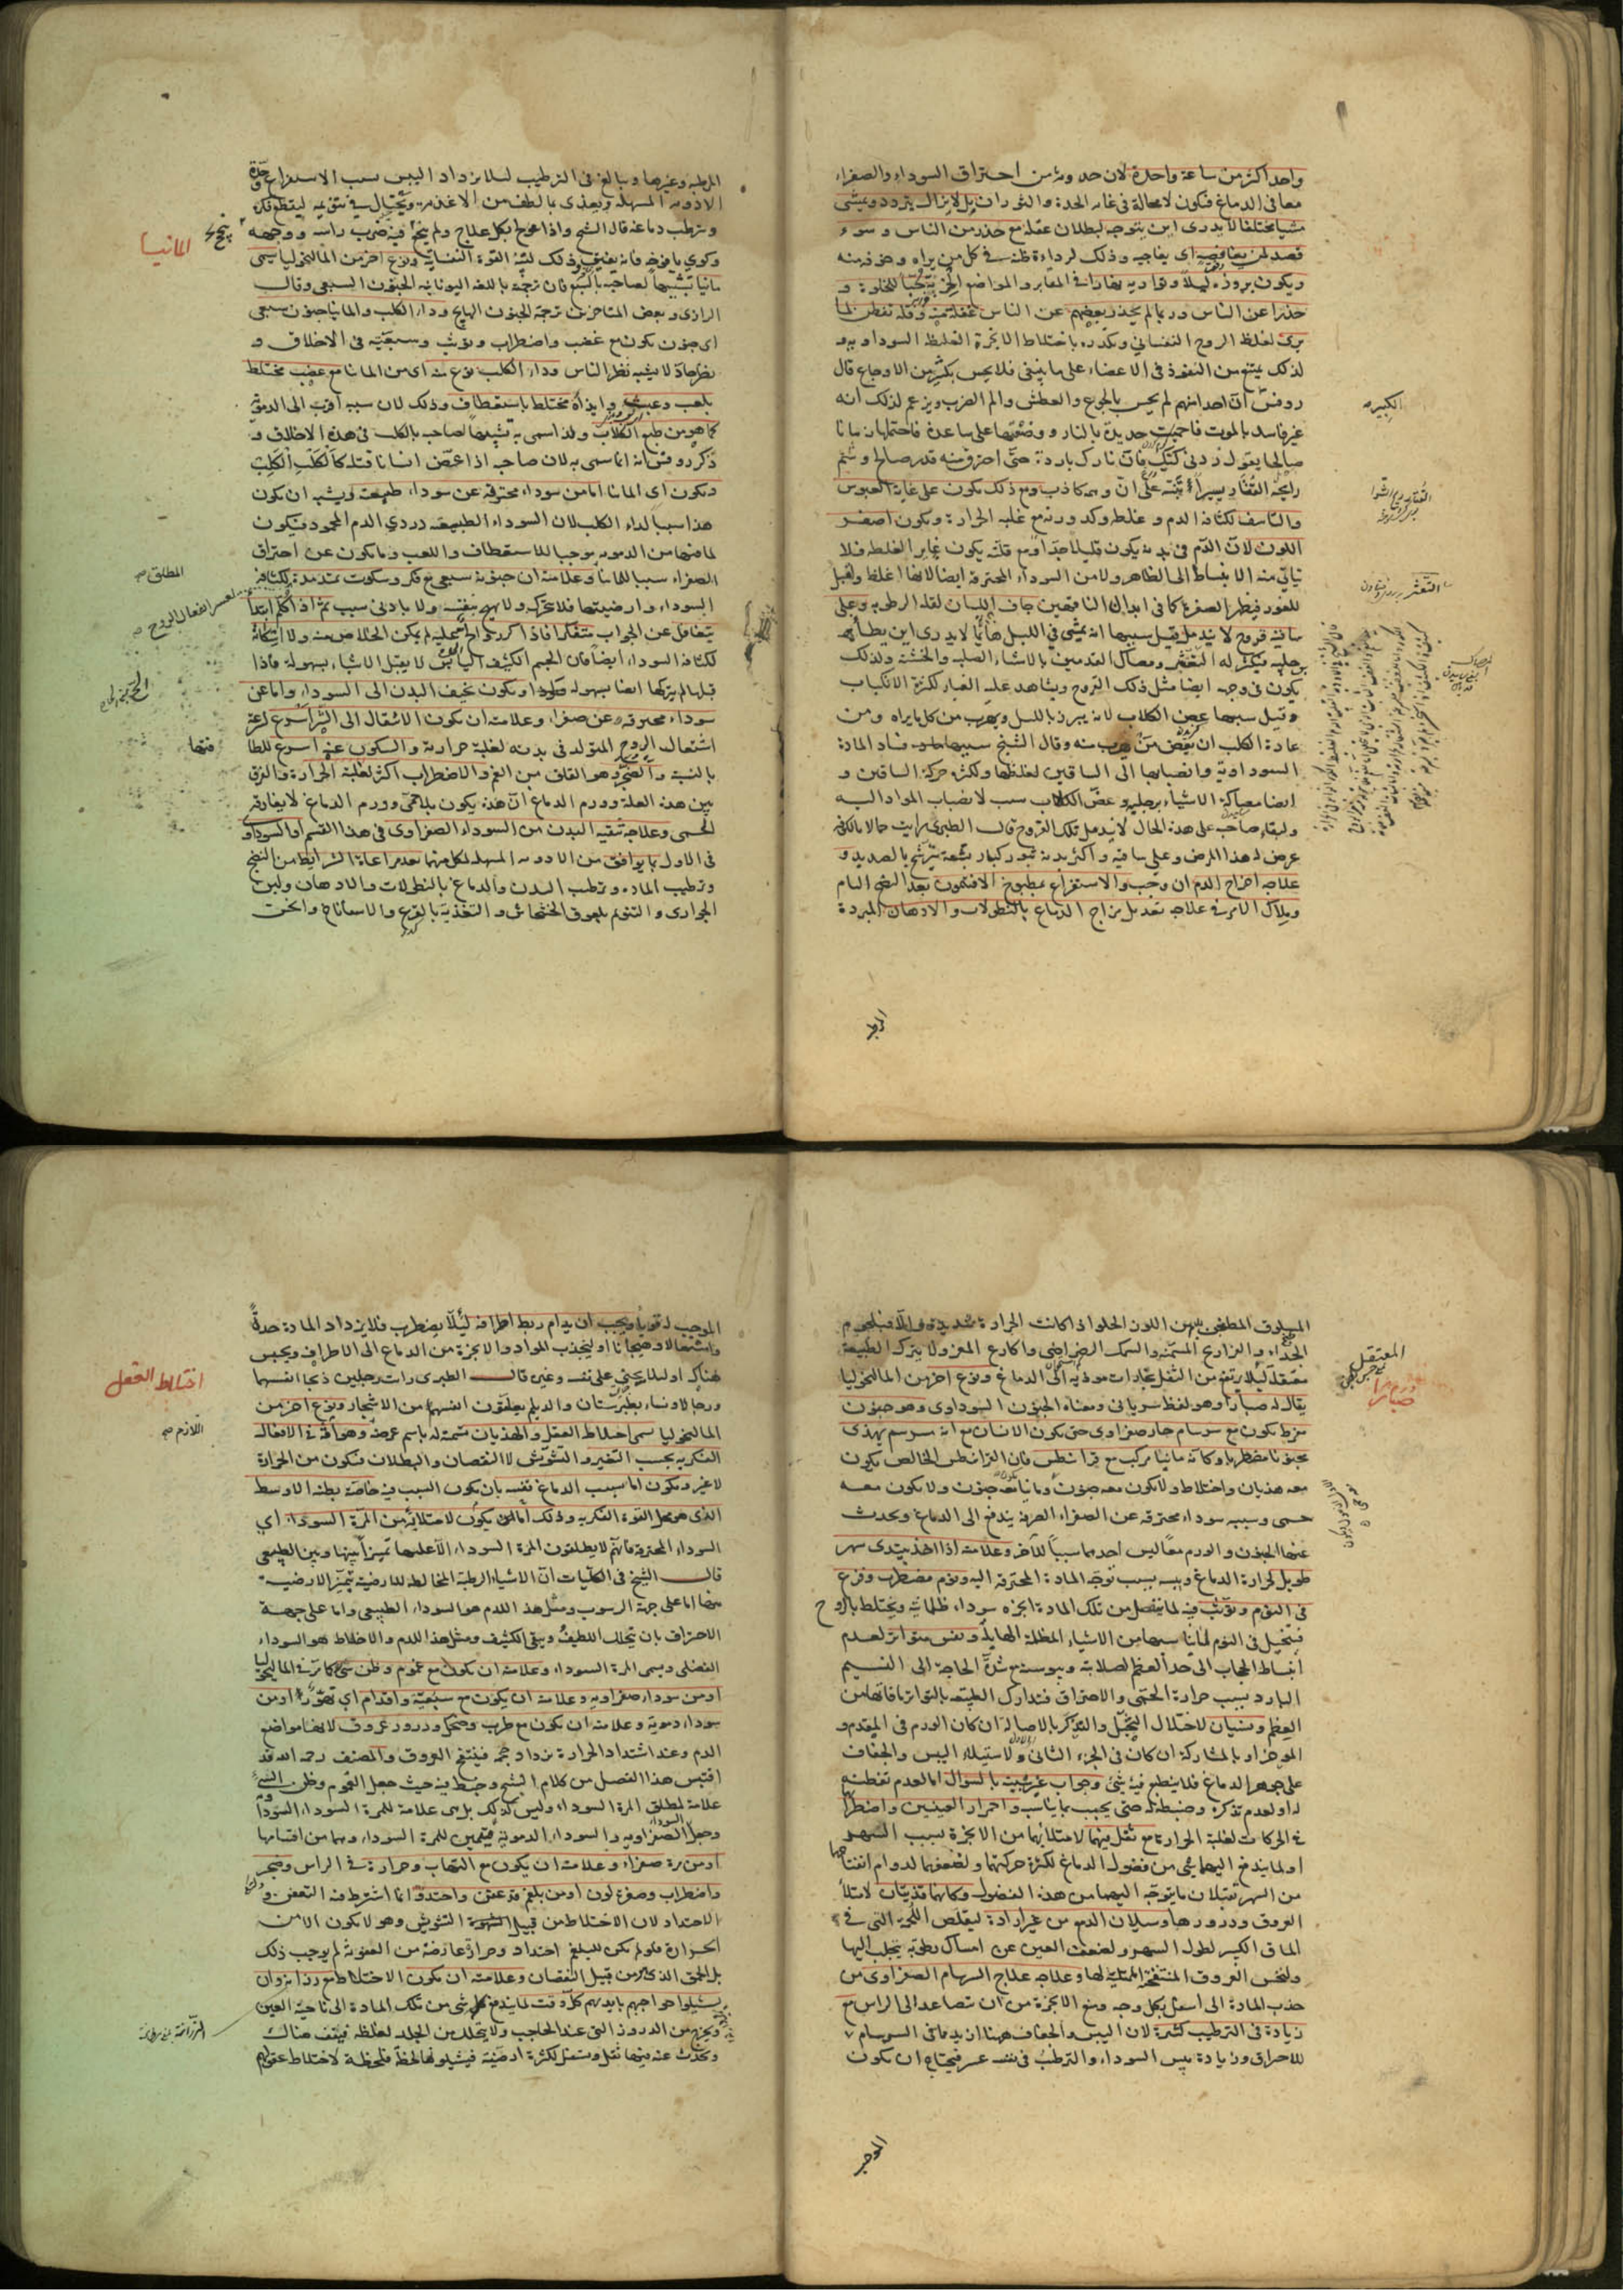 واحدا كثر من ساعة واحدة لان حدوثه من احتراق السوداء والصفراء
معا فى الدماغ فيكون لا محالة فى غاية الحدة والثوران بل لا يزال يتردد ويمشى
مشيا مختلفا لا يدرى اين يتوجه لبطلان عقله مع حذر من الناس وسوء
قصد لمن يغافصه اى يفاجيه وذلك لرداءة ظنه فى كل من يراه وخوفه منه
ويكون بروزه ليلا وتواريه نهارا فى المقابر والمواضع الخربة حبا للخلوة و
حذرا عن الناس وربما لم يحذر بعضهم عن الناس غفلة منه وقلة تفطن لما
يرى لغلظ الروح النفسانى وتكدره باختلاط الابخرة الغليظة السوداوية و
لذلك يمتنع من النفوذ فى الاعضاء على ما ينبغى فلا يحس بكثير من الاوجاع قال
روفس ان احدا منهم لم يحس بالجوع والعطش والم الضرب ويزعم لذلك انه
غير فاسد بالموت فاحميت حديدة بالنار ووضعتها على ساعده فاحتملها زمانا
صالحا يقول زدنى كتك فان نارك باردة حتى احترق منه قدر صالح وشم
رايحة القتار يسيرا تنبه على ان وهمه كاذب ومع ذلك يكون على غاية العبوس
والتاسف لكثافة الدم وغلظه وكدورته مع غلبة الحرارة ويكون اصفر
اللون لان الدم فى بدنه يكون قليلا جدا ومع قلته يكون غاير الغلظه فلا
يتاتى منه الانبساط الى الظاهر ولا من السوداء المحترقة ايضا لانها اغلظ واميل
للغور فيظهر الصفرة كما فى ابدان الناقهين جاف اللسان لقلة الرطوبة وعلى
ساقيه قروح لا تندمل قيل سببها انه يمشى فى الليل هائما لا يدرى اين يطأ
برجليه فيكثر له التعثر ومصاك القدمين بالاشياء الصلبة والخشنة ولذلك
يكون فى وجهه ايضا مثل ذلك القروح ويشاهد عليه الغبار لكثرة الانكباب
وقيل سببها عض الكلاب لانه يبرز بالليل ويهرب من كل ما يراه ومن
عادة الكلب ان يعض من يهرب منه وقال الشيخ سببها فساد المادة
السوداوية وانصبابها الى الساقين لغلظها وكثرة حركة الساقين و
ايضا مصاكة الاشياء برجليه وعض الكلاب سبب لانصباب المواد اليه
ولبقاء صاحبه على هذه الحال لا تندمل تلك القروح قال الطبرى رايت حمالا بالكوفة
عرض له هذا المرض وعلى ساقيه واكثر بدنه بثور كبار بشعة يترشح بالصديد و
علاجه اخراج الدم ان وجب والاستفراغ بمطبوخ الافتيمون بعد النضج التام
وملاك الامر فى علاجه تعديل مزاج الدماغ بالنطولات والادهان المبردة
الكبيرة
التعثر
المرطبة وغيرها ويبالغ فى الترطيب لئلا يزداد اليبس بسبب الاستفراغ وحدة
الادوية المسهلة ويغذى بالطف من الاغذية ويحتال فى تنويمه ليقطع فكره
ويترطب دماغه قال الشيخ واذا عولج بكل علاج ولم ينجع فيه ضرب راسه ووجهه
وكوى يافوخه فانه يفيق وذلك لتنبه القوة النفسانية ونوع اخر من المالنخوليا يسمى
مانيا تشبيها لصاحبه بالسبع فان ترجمته باللغة اليونانية الجنون السبعى وقال
الرازى وبعض المتاخرين ترجمته الجنون الهايج وداء الكلب والمانيا جنون سبعى
اى جنون يكون مع غضب واضطراب وتوثب وسبعية فى الاخلاق و
نظر حاد لا يشبه نظر الناس وداء الكلب نوع منه اى من المانيا مع غضب مختلط
بلعب وعبث وايذاء مختلط باستعطاف وذلك لان سببه اقرب الى الدموى
كما هو من طبع الكلاب ولذا سمى به تشبيها لصاحبه بالكلب فى هذه الاخلاق و
ذكر روفس انه انما سمى به لان صاحبه اذا عض انسانا قتله كالكلب الكلب
ويكون اى المانيا اما من سوداء محترقة عن سوداء طبيعية ويشبه ان يكون
هذا سببا لداء الكلب لان السوداء الطبيعية دردى الدم المحمود فيكون
لما فيها من الدموية موجبا للاستعطاف واللعب وما يكون عن احتراق
الصفراء سببا للمانيا وعلامته ان جنونه سبعى مع فكر وسكوت ممتد مدة لكثافة
السوداء وارضيتها فلا تتحرك ولا تهيج بنفسه ولا بادنى سبب ثم اذا كلم ابتدأ
يتغافل عن الجواب متفكرا فاذا اكرر الح عليه لم يمكن الخلاص منه ولا اسكاته
لكثافة السوداء ايضا فان الجسم الكثيف اليابس لا يقبل الاشياء بسهولة فاذا
قبلها لم يتركها ايضا بسهولة ويكون نحيف البدن الى السوداء واما عن
سوداء محترقة عن صفراء وعلامته ان يكون الانتقال الى الشر اسرع لسرعة
اشتعال الروح المتولد فى بدنه لغلبة حرارته والسكون عنه اسرع للطا
بالنسبة والضجر وهو القلق من الغم والاضطراب اكثر لغلبة الحرارة والفرق
بين هذه العلة وورم الدماغ ان هذه يكون بلا حمى وورم الدماغ لا يفارقه
الحمى وعلاجه تنقية البدن من السوداء الصفراوى فى هذا القسم او السوداء
فى الاول بما يوافق من الادوية المسهلة لكل منهما بعد مراعاة الشرايط من النضج
وترطيب المادة وترطيب البدن والدماغ بالنطولات والادهان ولبن
الجوارى والتنويم بلعوق الخشخاش والتغذية بالقرع والاسفاناخ والخس
المانيا
المطلق
منها
المسلوق المطبوخ بدهن اللوز الحلو اذا كانت الحرارة شديدة والا فبلحوم
الجداء والفراريج المسمنة والسمك الرضراضى واكارع المعز ولا يترك الطبيعة
معتقلة لئلا يرتفع من الثفل بخارات موذية الى الدماغ ونوع اخر من المالنخوليا
يقال له صبارا وهو لفظ سريانى ومعناه الجنون السوداوى وهو جنون
مفرط يكون مع سرسام حار صفراوى حتى يكون الانسان مع انه مسرسم يهذى
مجنونا مضطربا وكانه مانيا مركب مع قرانيطس فان القرانيطس الخالص يكون
معه هذيان واختلاط ولا يكون معه جنون ومانيا معه جنون ولا يكون معه
حمى وسببه سوداء محترقة عن الصفراء الصرفة يندفع الى الدماغ ويحدث
عنها الجنون والورم معا ليس احدهما سببا للآخر وعلامته اذا اخذ يبتدى سهر
طويل لحرارة الدماغ ويبسه بسبب توجه المادة المحترقة اليه ونوم مضطرب وفزع
فى النوم وتوثب فيه لما ينفصل من تلك المادة ابخرة سوداء ظلمانية ويختلط بالروح
فيتخيل فى النوم لما يناسبها من الاشياء المظلمة الهايلة ونفس متواتر لعدم
انبساط الحجاب الى حد العظم لصلابته ويبوسته مع شدة الحاجة الى النسيم
البارد بسبب حرارة الحمى والاحتراق فتدارك الطبيعة بالتواتر ما فاتها من
العظم ونسيان لاختلال التخيل والتذكر بالاصالة ان كان الورم فى المقدم و
الموخر او بالمشاركة ان كان فى الجزء الثانى ولاستيلاء اليبس والجفاف
على جوهر الدماغ فلا ينطبع فيه شئ وجواب غير شبيه بالسؤال اما لعدم تفطنه
له او لعدم تذكره وضبطه له حتى يجيب بما يناسب واحمرار العينين واضطراب
فى الحركات لغلبة الحرارة مع ثقل فيهما لامتلائهما من الابخرة بسبب السهر
او لما يندفع اليهما شئ من فضول الدماغ لكثرة حركتهما ولضعفهما لدوام انفتاحهما
من السهر تقبلان ما يتوجه اليهما من هذه الفضول وكانهما قذيتان لامتلاء
العروق ودرورها وسيلان الدمع من غير ارادة ليقلص اللحمة التى فى
الماق الكبير لطول السهر ولضعف العين عن امساك رطوبة ينجلب اليها
ولنخس العروق المنتفخة الممتلية لها وعلاجه علاج السرسام الصفراوى من
جذب المادة الى اسفل بكل وجه ومنع الابخرة من ان تصاعد الى الراس مع
زيادة فى الترطيب كثيرة لان اليبس والجفاف ههنا ازيد مما فى السرسام
للاحتراق وزيادة يبس السوداء والترطيب فى نفسه عسر فيحتاج ان يكون
المعتقل
صبارا
الموجب له قويا ويجب ان يدام ربط اطرافه لئلا يضطرب فلا يزداد المادة حدة
واشتعالا وهيجانا او لينجذب المواد والابخرة من الدماغ الى الاطراف ويحبس
هناك او لئلا يجنى على نفسه وغيره قال الطبرى رايت رجلين ذبحا انفسهما
ورجالا ونساء بطبرستان والديلم يعلقون انفسهم من الاشجار ونوع اخر من
المالنخوليا يسمى اختلاط العقل والهذيان تسمية له باسم عرضه وهو آفة فى الافعال
الفكرية بحسب التغير والتشوش لا النقصان والبطلان فتكون من الحرارة
لا غير ويكون اما بسبب الدماغ نفسه بان يكون السبب فيه خاصة بطنه الاوسط
الذى هو محل القوة الفكرية وذلك اما ان يكون لامتلائه من المرة السوداء اى
السوداء المحترقة فانهم لا يطلقون المرة السوداء الا عليها تميزا بينها وبين الطبيعى
قال الشيخ فى الكليات ان الاشياء الرطبة المخالطة للارضية يتميز الارضية
منها اما على جهة الرسوب ومثل هذا للدم هو السوداء الطبيعى واما على جهة
الاحتراق بان يتحلل اللطيف ويبقى الكثيف ومثل هذا للدم والاخلاط هو السوداء
الفضلى ويسمى المرة السوداء وعلامته ان يكون مع غموم وظن سئ كما مر فى المالنخوليا
او من سوداء صفراوية وعلامته ان يكون مع سبعية واقدام اى تهور او من
سوداء دموية وعلامته ان يكون مع طرب وضحك ودرور عروق لانها مواضع
الدم وعند اشتداد الحرارة يزداد حجمه فينتفخ العروق والمصنف رحمه الله قد
اقتبس هذا الفصل من كلام الشيخ وخبط فيه حيث جعل الغموم وظن السوء
علامة لمطلق المرة السوداء وليس كذلك بل هى علامة للمرة السوداء السوداوية
وجعل الصفراوية والسوداء الدموية قسمين للمرة السوداء وهما من اقسامها
او من مرة صفراء وعلامته ان يكون مع التهاب وحرارة فى الراس وضجر
واضطراب وصفرة لون او من بلغم قد عفن واحتد وانما اشترط فيه التعفن و
الاحتداد لان الاختلاط من قبيل التشويش وهو لا يكون الا من
الحرارة فلو لم يكن للبلغم احتداد وحرارة عارضة من العفونة لم يوجب ذلك
بل الحمق الذى هو من قبيل النقصان وعلامته ان يكون الاختلاط مع رزانة وان
يشيلوا حواجبهم بايديهم كل وقت لما يندفع شئ من تلك المادة الى ناحية العين
ويخرج من الدروز التى عند الحاجب ولا يتحلل من الجلد لغلظه فيقف هناك
ويحدث عنه فيها ثقل وتسفل لكثرة ارضيته فيشيلونها لحظة فلحظة لاختلاط عقولهم
اختلاط العقل
اللازم